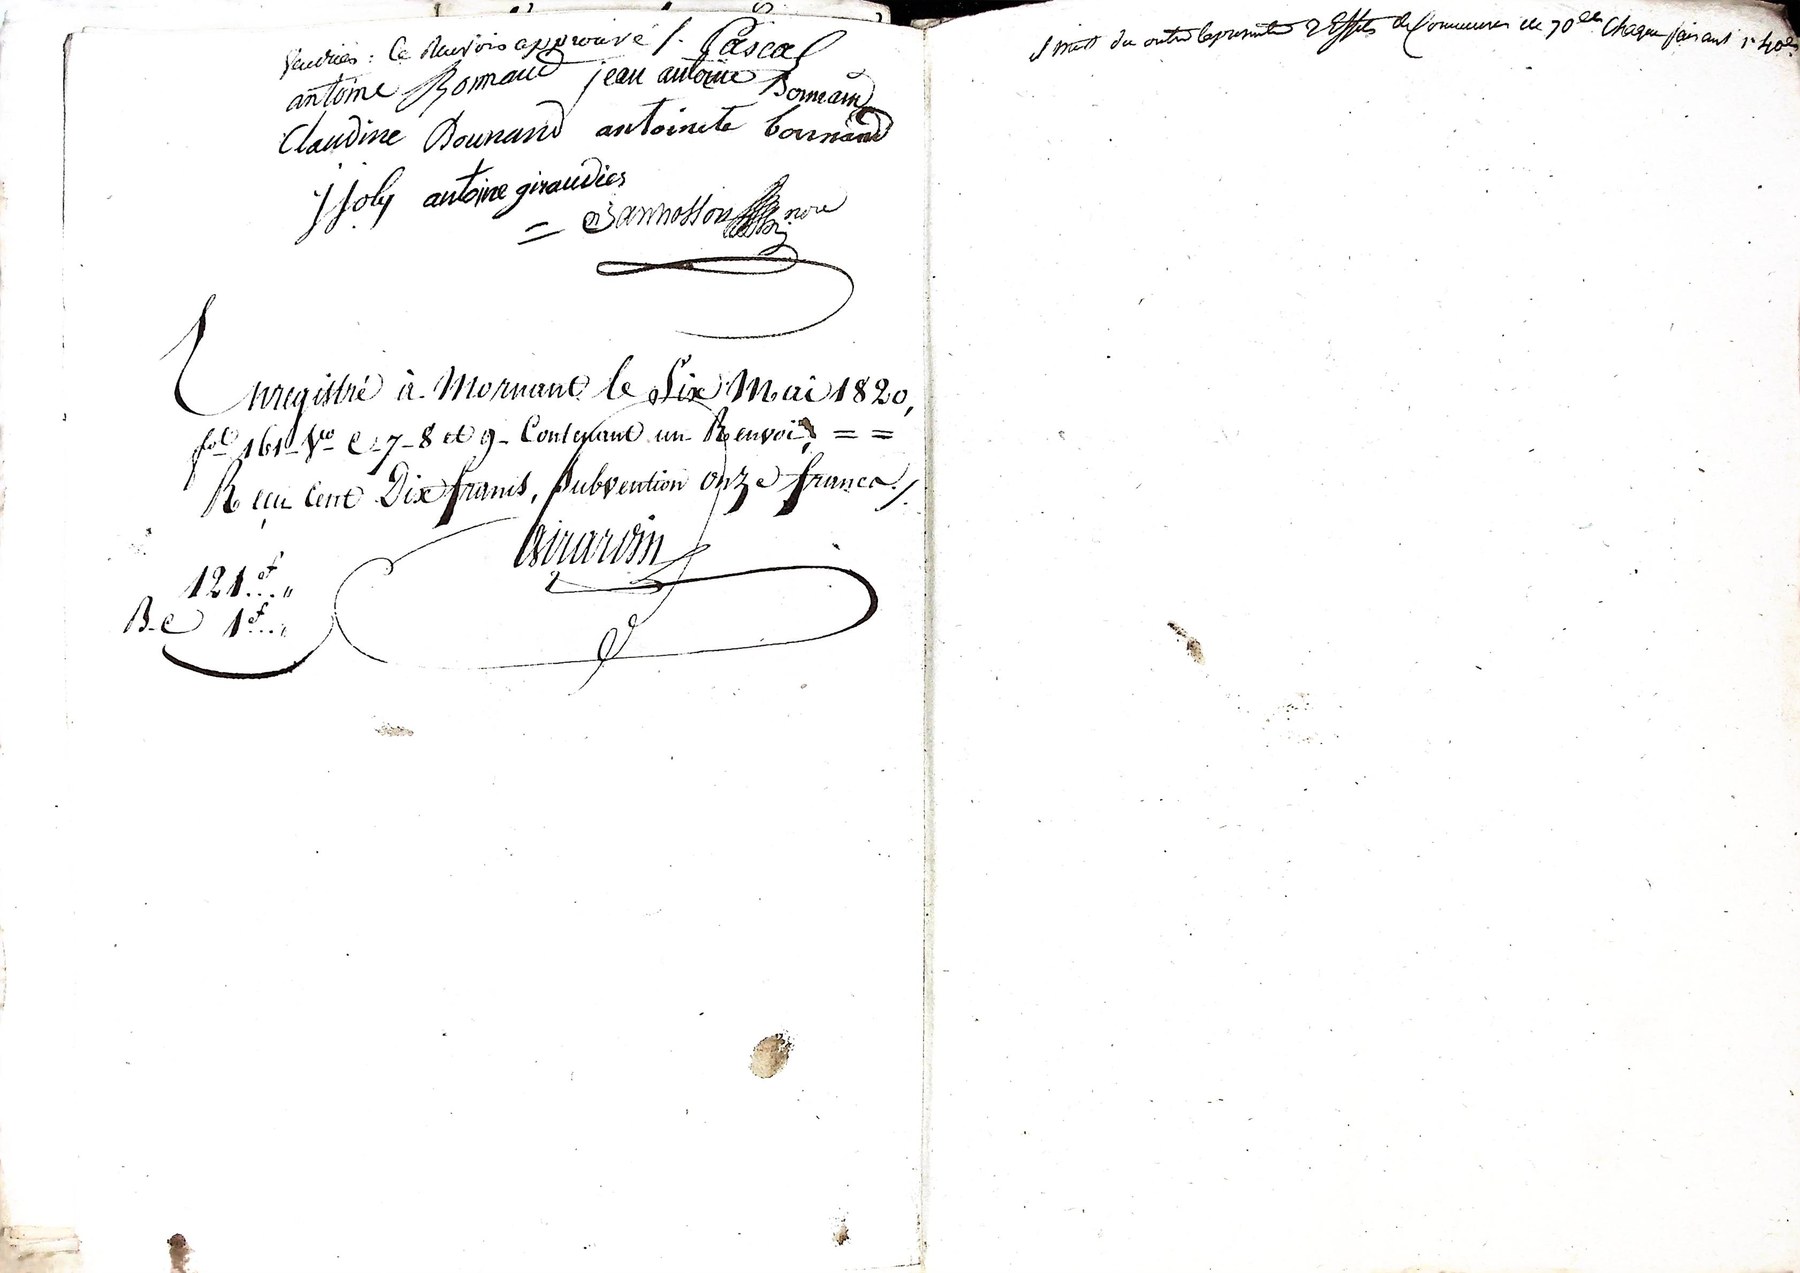 ce Renvois approuvé /. Pascal
antoine Bonnand jean antoine Bonnand
Claudine Bounand antoinete bonnand
j joly antoine giraudier
= Jannosson nore
Enregistré à Mornant le Six Mai 1820,
fol. 161 Vo C. 7 - 8 et 9 - Contenant un Renvoi, = =
Reçu Cent Dix francs, Subvention onze francs /.
Girardin
121 f..."
B. C 1 f..."
du outre 2 Effets de Commerce de 70 cs Chaque faisant 1 40 cs